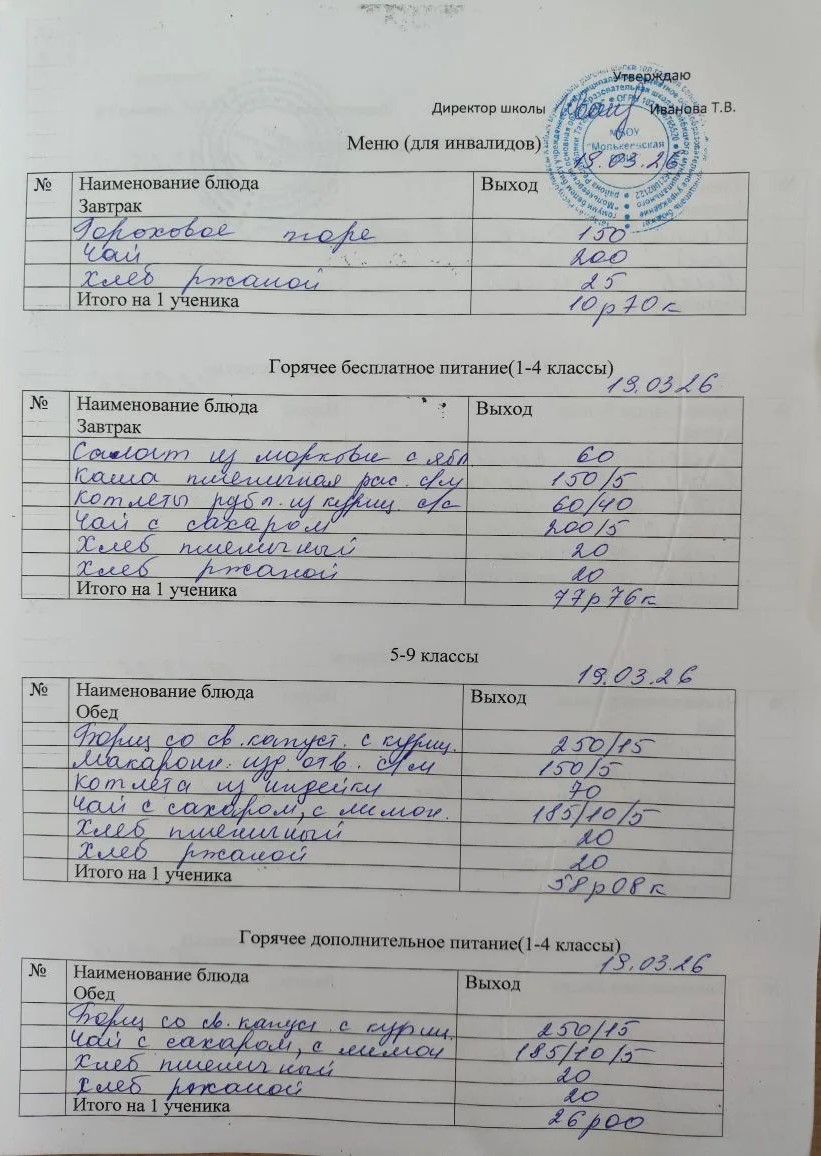 Утверждаю
Директор школы Иванова Т.В.
МБОУ
"Молькеевская
Меню (для инвалидов) 19.03.26
№ Наименование блюда Выход
Завтрак
Гороховое пюре 150
Чай 200
Хлеб ржаной 25
Итого на 1 ученика 10р70к
Горячее бесплатное питание(1-4 классы)
19.03.26
№ Наименование блюда Выход
Завтрак
Салат из моркови с ябл. 60
Каша пшеничная рас. с/м 150/5
Котлеты рубл. из куриц. с/с 60/40
Чай с сахаром 200/5
Хлеб пшеничный 20
Хлеб ржаной 20
Итого на 1 ученика 77р76к
5-9 классы
19.03.26
№ Наименование блюда Выход
Обед
Борщ со св. капуст. с куриц. 250/15
Макарон. изд. отв. с/м 150/5
Котлета из индейки 70
Чай с сахаром, с лимон. 185/10/5
Хлеб пшеничный 20
Хлеб ржаной 20
Итого на 1 ученика 58р08к
Горячее дополнительное питание(1-4 классы)
19.03.26
№ Наименование блюда Выход
Обед
Борщ со св. капуст. с куриц. 250/15
Чай с сахаром, с лимон 185/10/5
Хлеб пшеничный 20
Хлеб ржаной 20
Итого на 1 ученика 26р00